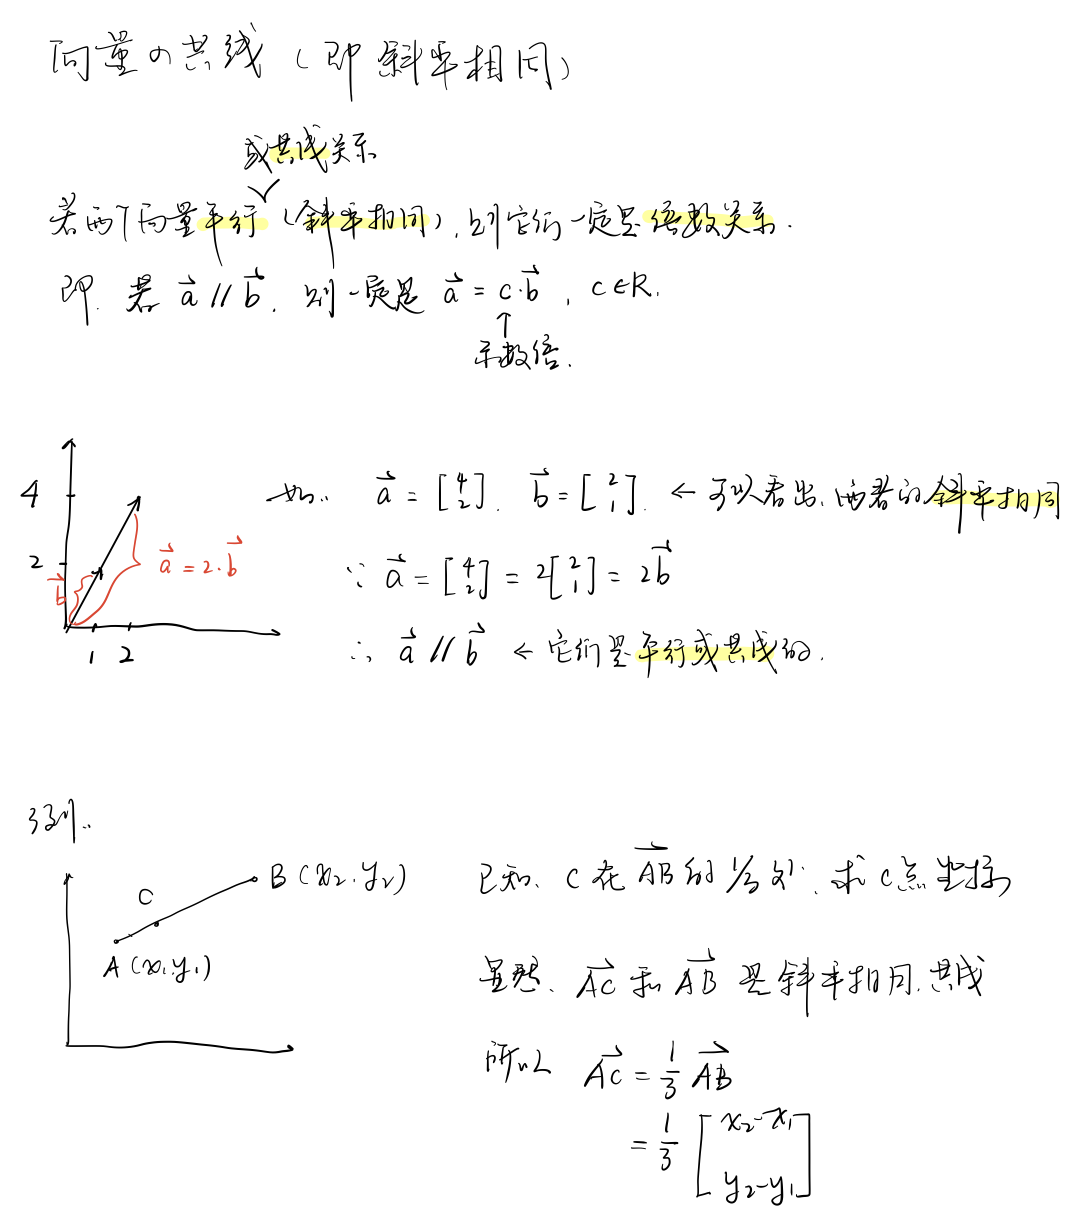 向量の共线（即斜率相同）
或共线关系
若两个向量平行（斜率相同），则它们一定是倍数关系.
即. 若 a⃗ // b⃗, 则一定是 a⃗ = c·b⃗, c∈R.
↑
系数倍.
4
2
1 2
b⃗
a⃗ = 2·b⃗
如.. a⃗ = [4 2]. b⃗ = [2 1]. ← 可以看出, 两者的斜率相同
∵ a⃗ = [4 2] = 2[2 1] = 2b⃗
∴ a⃗ // b⃗ ← 它们是平行或共线的.
例..
C
B (x₂, y₂)
A (x₁, y₁)
已知. C 在 AB⃗ 的 1/3 处, 求 C点坐标
显然. AC⃗ 和 AB⃗ 是斜率相同. 共线
所以 AC⃗ = 1/3 AB⃗
= 1/3 [x₂-x₁
y₂-y₁]